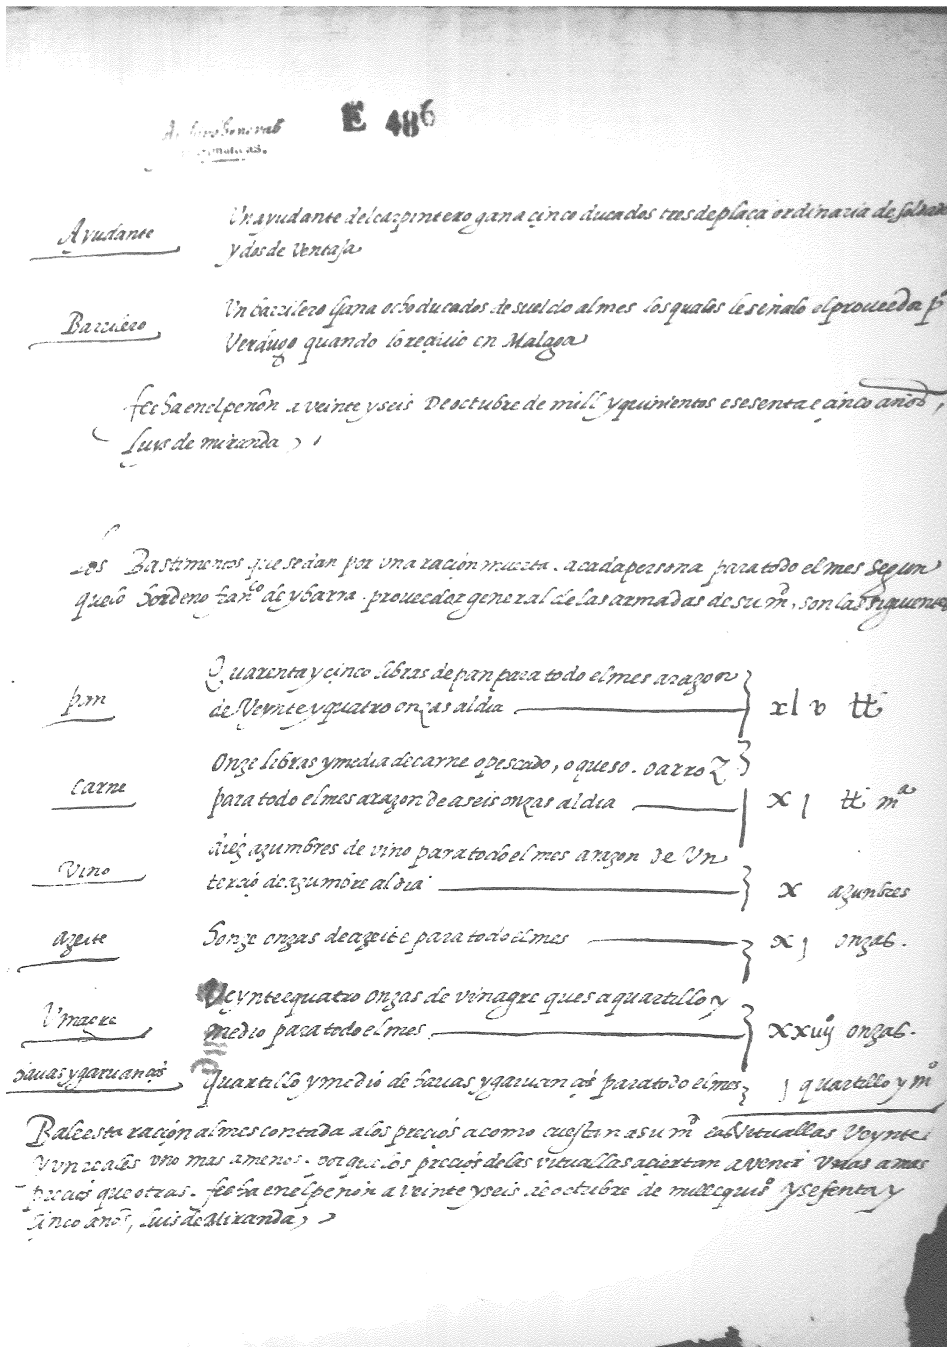 Archivo General
Simancas.
E 486
Ayudante
Un ayudante del carpintero gana cinco ducados tres de plaça ordinaria de soldado
y dos de Ventaja
Barrilero
Un barrilero gana ocho ducados de sueldo al mes los quales le señalo el proueedor p.º
Verdugo quando lo reciuio en Malaga
fecha en el peñon a veinte y seis De octubre de mill y quinientos e sesenta e cinco años,
Luys de miranda
Los Bastimentos que se dan por una ración muerta. a cada persona para todo el mes segun
que lo hordeno fran.co de ybarra. proueedor general de las armadas de su m.d, son las siguientes
pan
Quarenta y cinco libras de pan para todo el mes a razon
de Veynte y quatro onzas al dia
xlv tt
Carne
Onze libras y media de carne o pescado, o queso. o arroz
para todo el mes a razon de a seis onzas al dia
xj tt m.a
Vino
diez azumbres de vino para todo el mes a razon de Un
tercio de azumbre al dia
x azunbres
azeite
honze onzas de azeite para todo el mes
xj onzas.
Vinagre
Veynte e quatro onzas de vinagre que es a quartillo y
medio para todo el mes
xxiiij onzas.
hauas y garuanços
quartillo y medio de hauas y garuanços para todo el mes
j quartillo y m.º
Bale esta ración al mes contada a los precios a como cuestan a su m.d las Vituallas Veynte
y un reales uno mas a menos. porque los precios de las vituallas aciertan a venir Unas a mas
precios que otras. fecha en el peñon a veinte y seis de octubre de mill e qui.os y sesenta y
cinco años, Luis de Miranda,